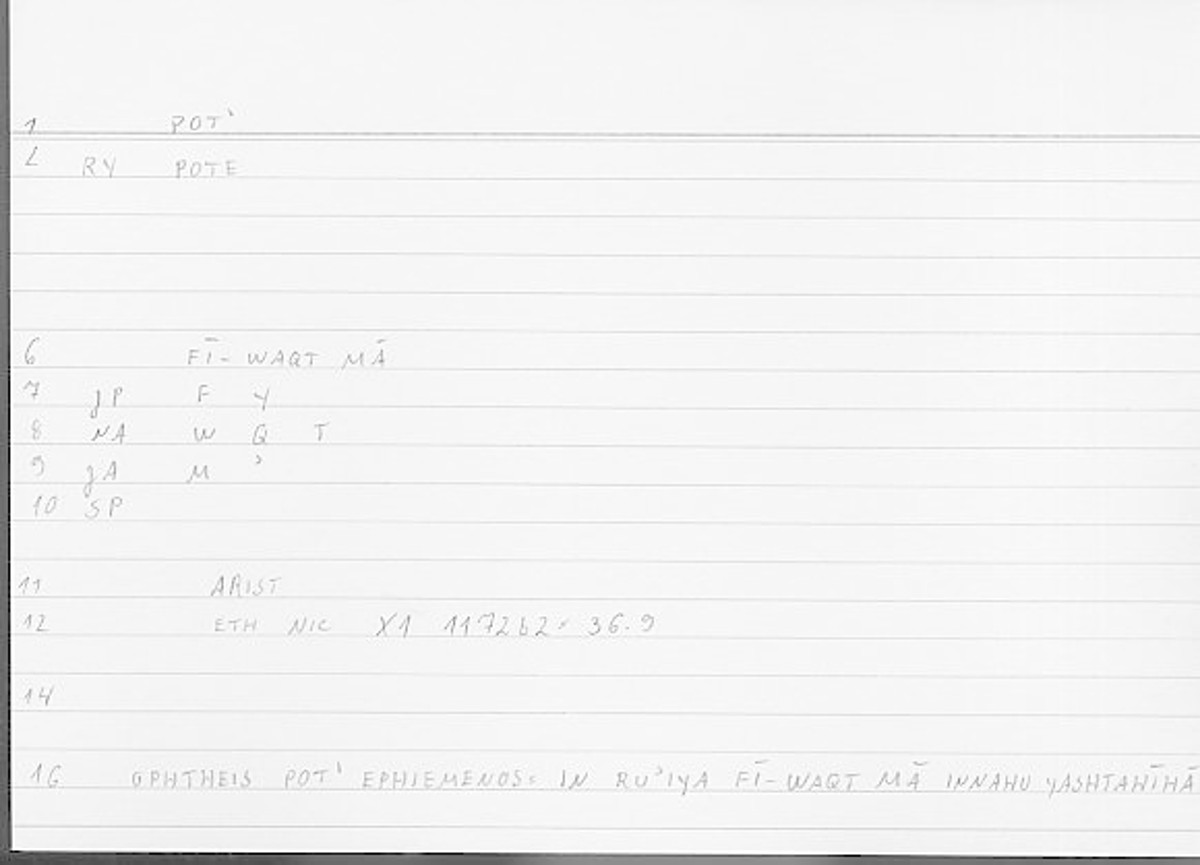 1 POT'
2 RY POTE
6 FĪ- WAQT MĀ
7 JP F Y
8 NA W Q T
9 JA M ʾ
10 SP
11 ARIST
12 ETH NIC X1 1172b2= 36.9
14
16 OPHTHEIS POT' EPHIEMENOS= IN RUʾIYA FĪ-WAQT MĀ INNAHU YASHTAHĪHĀ